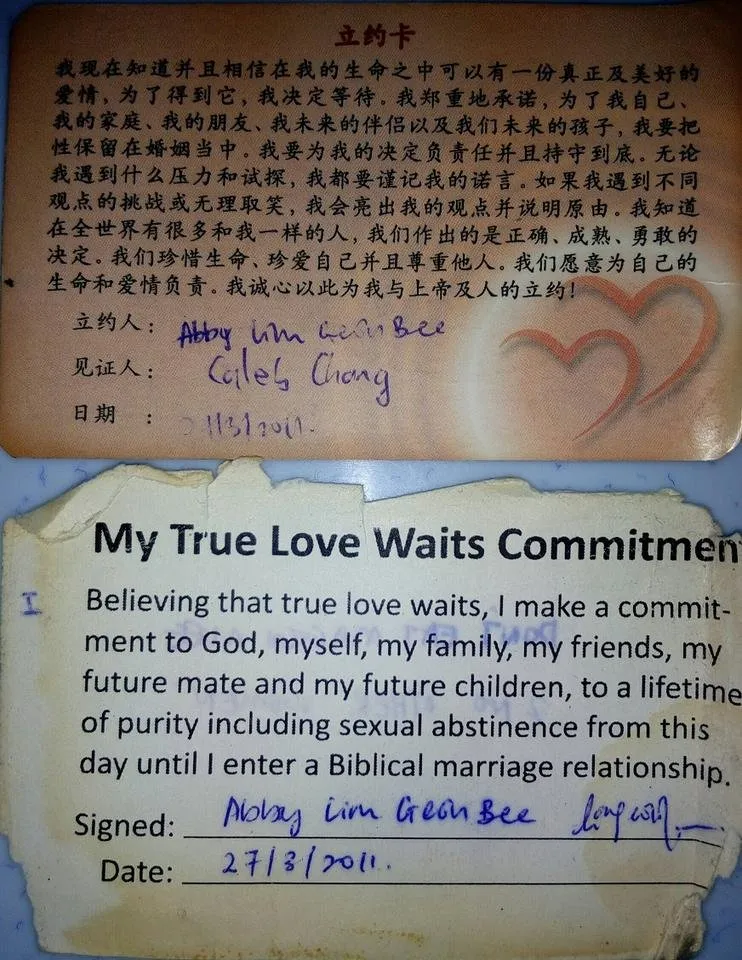 立约卡
我现在知道并且相信在我的生命之中可以有一份真正及美好的
爱情，为了得到它，我决定等待。我郑重地承诺，为了我自己、
我的家庭、我的朋友、我未来的伴侣以及我们未来的孩子，我要把
性保留在婚姻当中。我要为我的决定负责任并且持守到底。无论
我遇到什么压力和试探，我都要谨记我的诺言。如果我遇到不同
观点的挑战或无理取笑，我会亮出我的观点并说明原由。我知道
在全世界有很多和我一样的人，我们作出的是正确、成熟、勇敢的
决定。我们珍惜生命、珍爱自己并且尊重他人。我们愿意为自己的
生命和爱情负责。我诚心以此为我与上帝及人的立约！
立约人： Abby Lim Geon Bee
见证人： Caleb Chong
日期 ： /3/2011.
My True Love Waits Commitmen
I Believing that true love waits, I make a commit-
ment to God, myself, my family, my friends, my
future mate and my future children, to a lifetime
of purity including sexual abstinence from this
day until I enter a Biblical marriage relationship.
Signed: Abby Lim Geon Bee
Date: 27/3/2011.